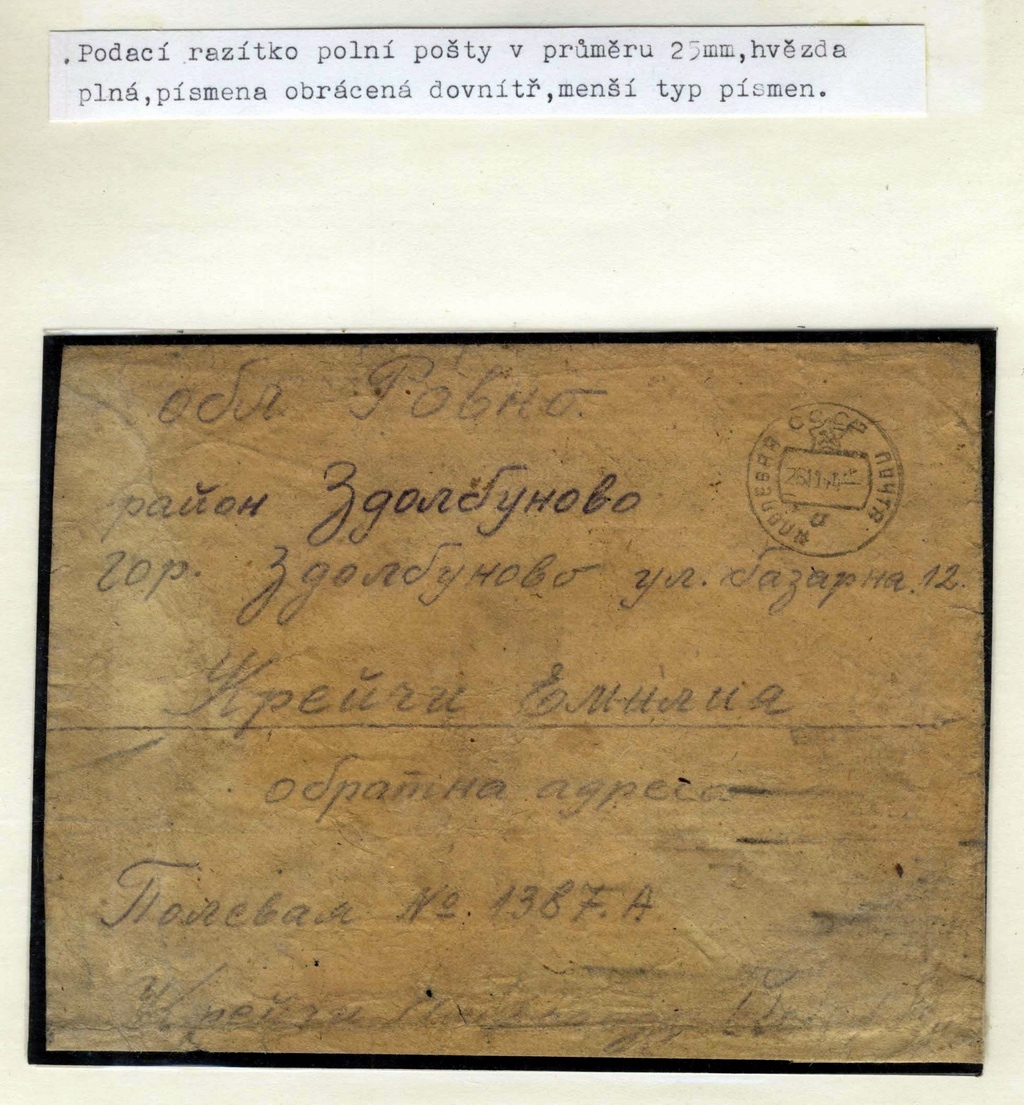 Podací razítko polní pošty v průměru 25mm,hvězda
plná,písmena obrácená dovnítř,menší typ písmen.
обл Ровно
СССР
ПОЛЕВАЯ ПОЧТА
район Здолбуново
гор. Здолбуново ул. базарна.12.
Крейчи Емилия
обратна адреса
Полевая №. 1387.А
Крейчи